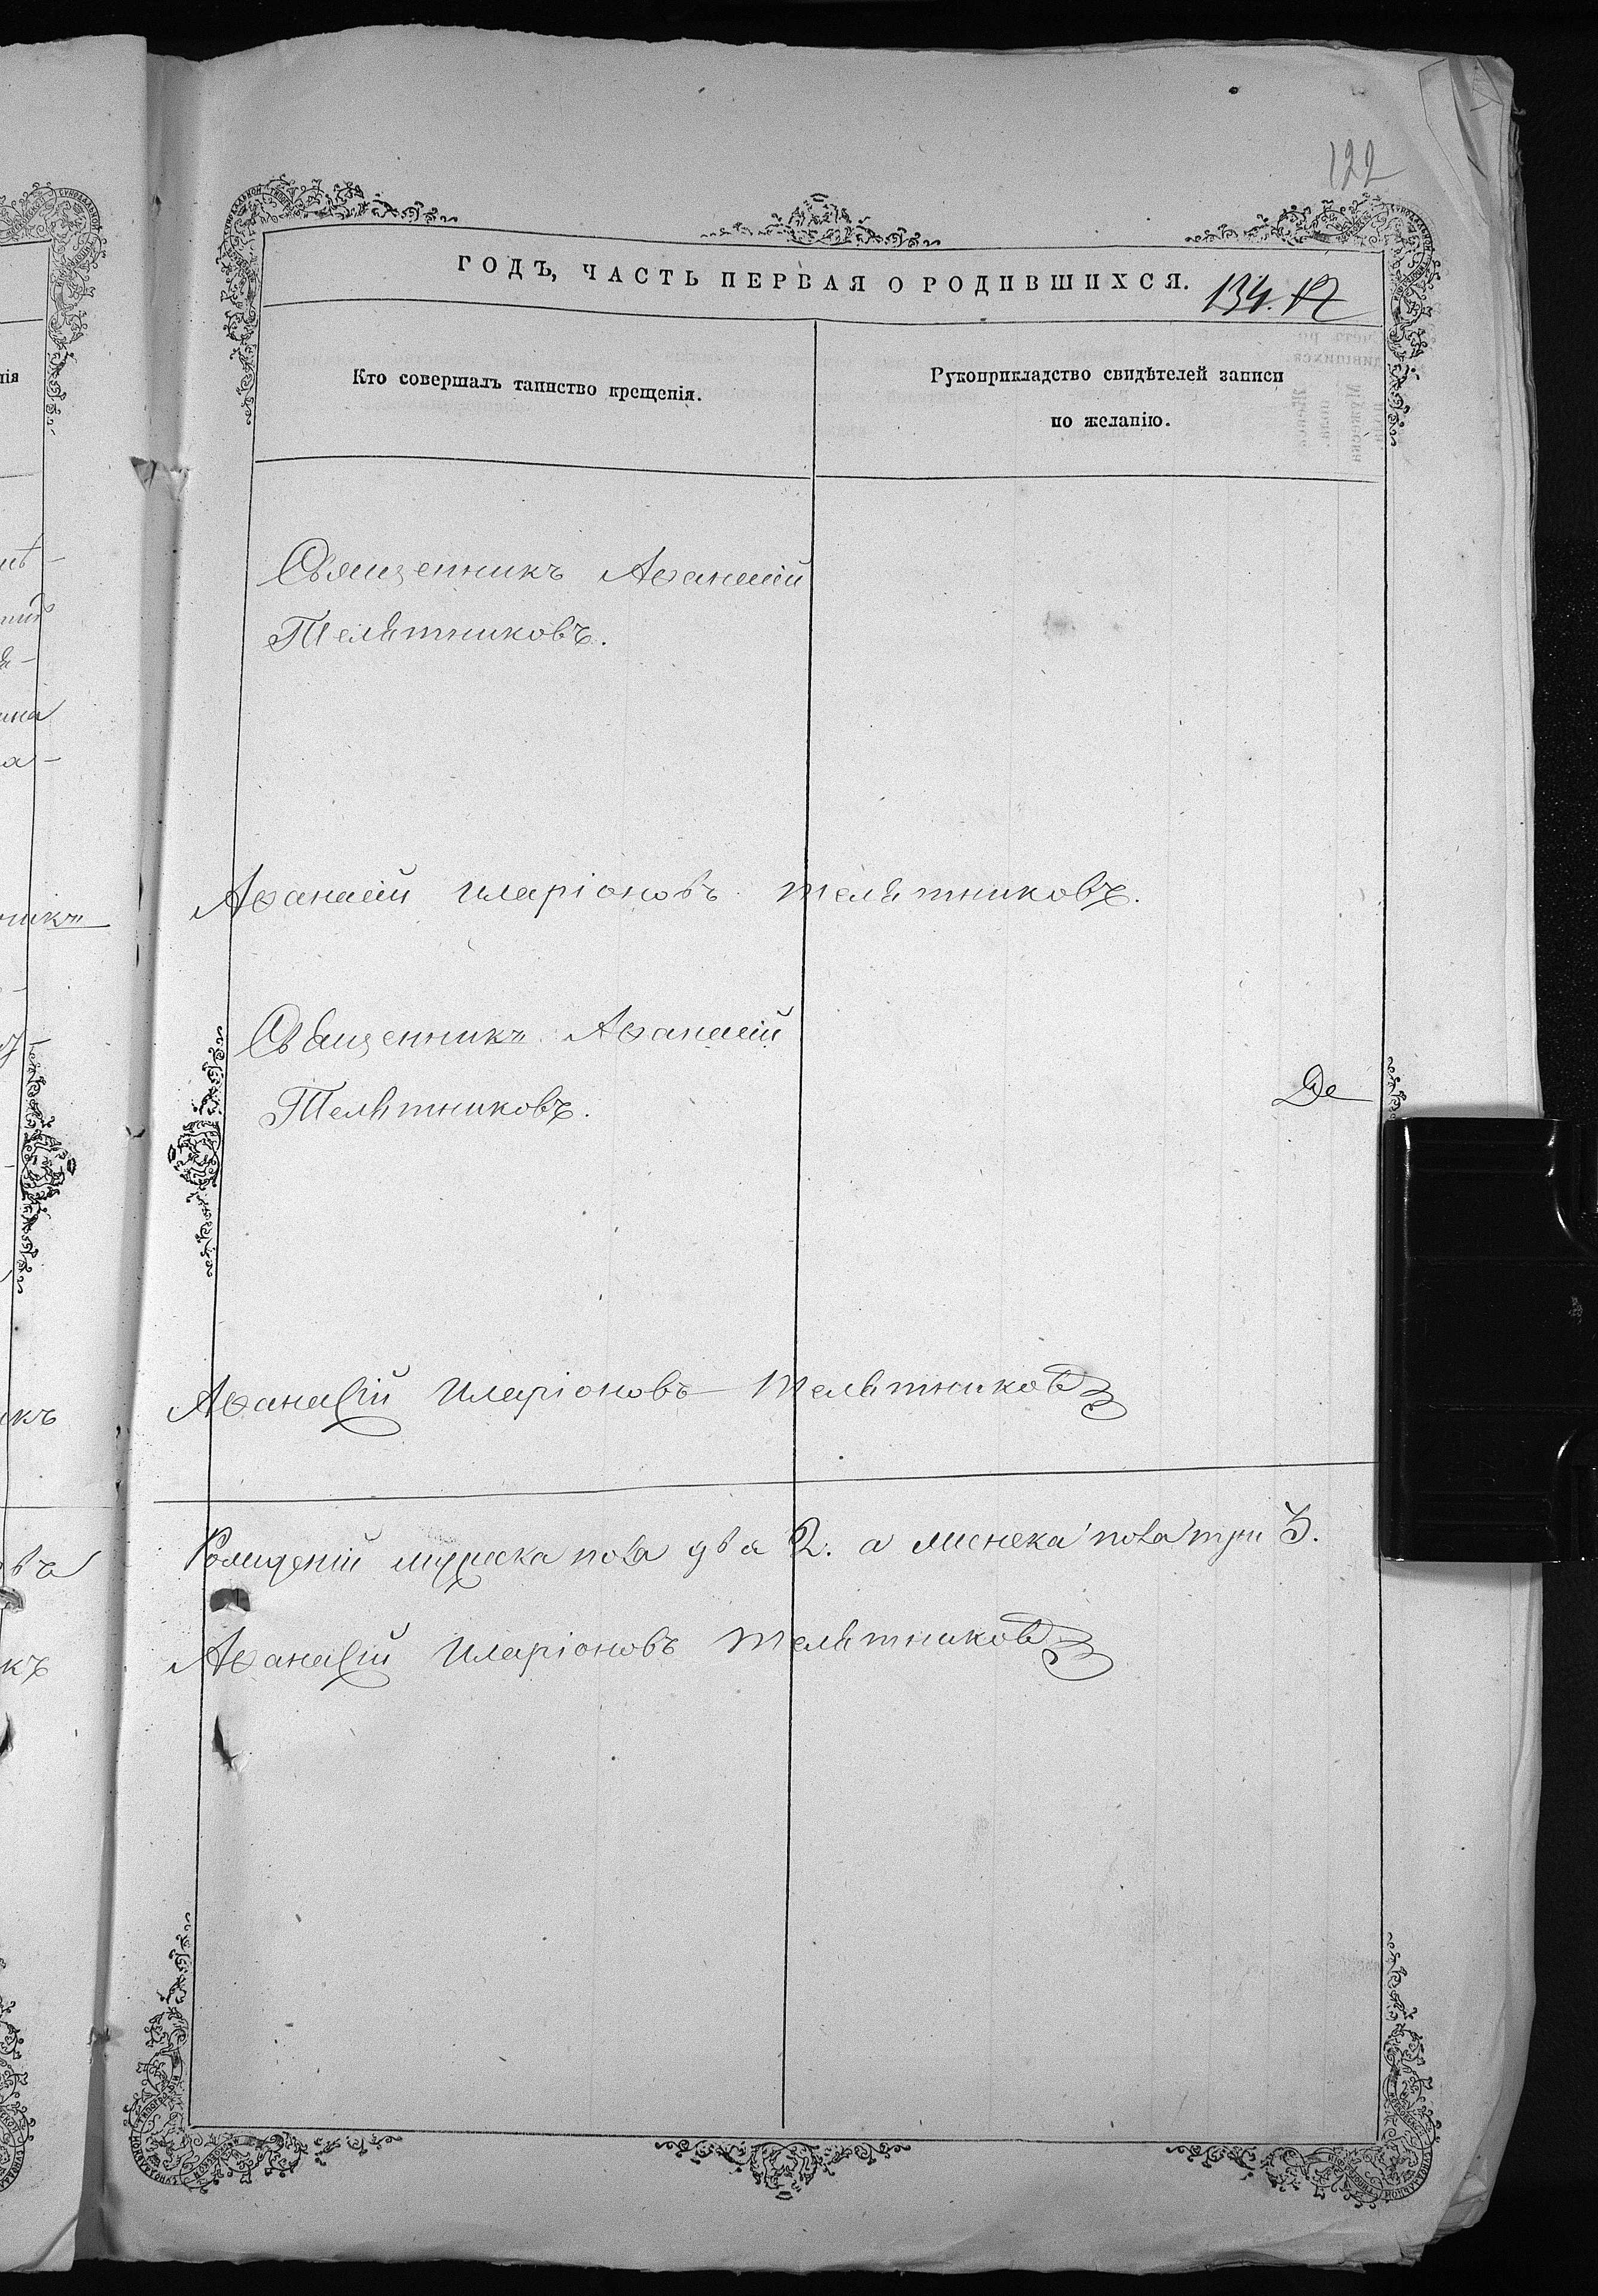 122
ГОДЪ, ЧАСТЬ ПЕРВАЯ О РОДИВШИХСЯ.
134.
Кто совершалъ таинство крещенія.
Рукоприкладство свидѣтелей записи
по желанію.
Священникъ Аѳанасій
Телятниковъ.
Аѳанасій Иларіоновъ Телятниковъ.
Священникъ Аѳанасій
Телятниковъ.
Де
Аѳанасій Иларіоновъ Телятниковъ
Рожденій мужеска пола два 2. а женска пола три 3.
Аѳанасій Иларіоновъ Телятниковъ